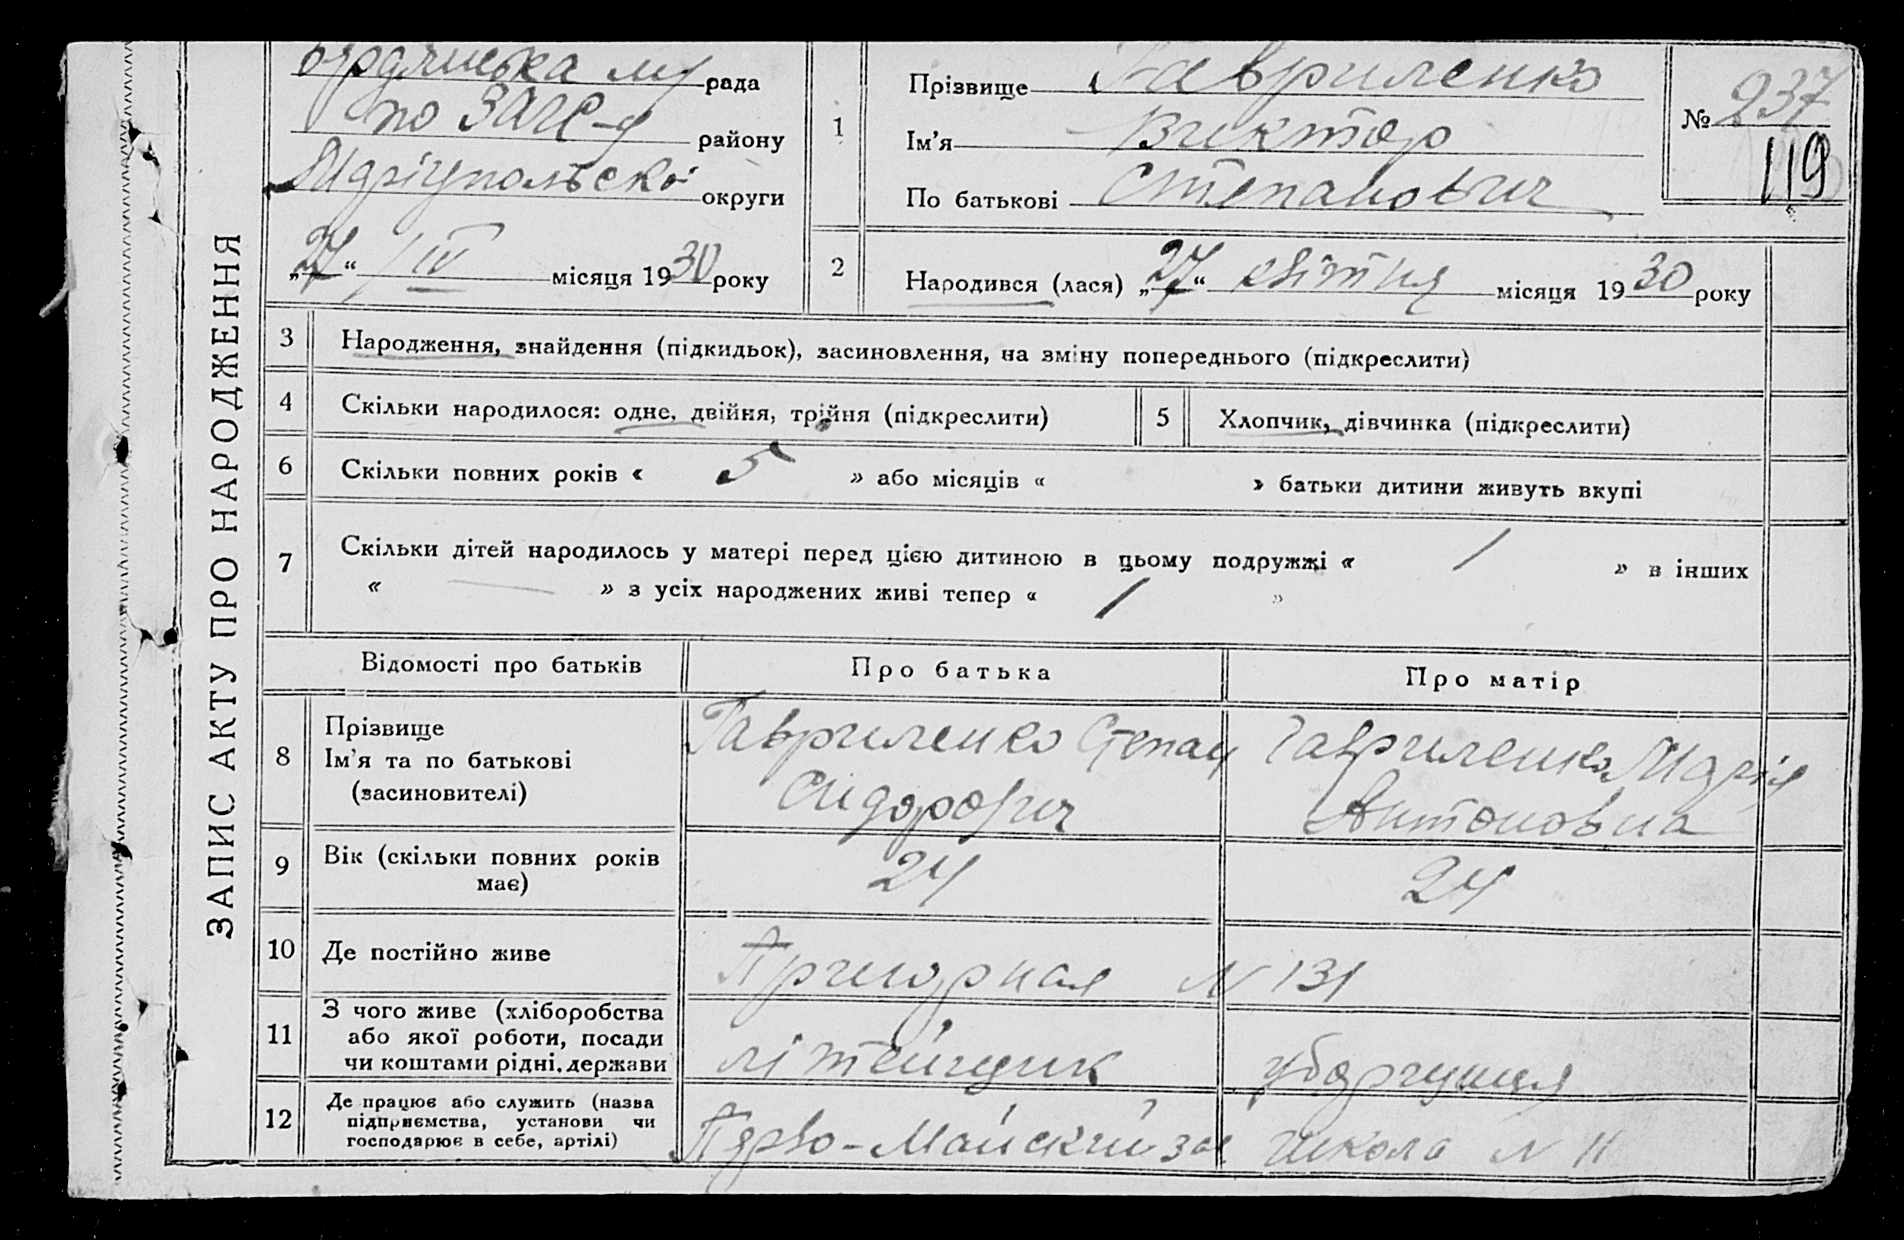 ЗАПИС АКТУ ПРО НАРОДЖЕННЯ
Бердянська рада
по ЗАГС-у району
Маріупольської округи
„27“ IV місяця 1930 року
1
Прізвище Гавриленко
Ім’я Виктор
По батькові Степанович
№ 237
119
2
Народився (лася) „27“ квітня місяця 1930 року
3 Народження, знайдення (підкидьок), засиновлення, на зміну попереднього (підкреслити)
4 Скільки народилося: одне, двійня, трійня (підкреслити)
5 Хлопчик, дівчинка (підкреслити)
6 Скільки повних років « 5 » або місяців « » батьки дитини живуть вкупі
7 Скільки дітей народилось у матері перед цією дитиною в цьому подружжі « 1 » в інших
« — » з усіх народжених живі тепер « 1 »
Відомості про батьків Про батька Про матір
8
Прізвище
Ім’я та по батькові
(засиновителі)
Гавриленко Степан
Сидорович
Гавриленко Марія
Антоновна
9
Вік (скільки повних років
має)
24
24
10 Де постійно живе
Пригорная N 131
11
З чого живе (хліборобства
або якої роботи, посади
чи коштами рідні, держави
літейщик
уборщиця
12
Де працює або служить (назва
підприємства, установи чи
господарює в себе, артілі)
Перво-Майский за
школа N 11